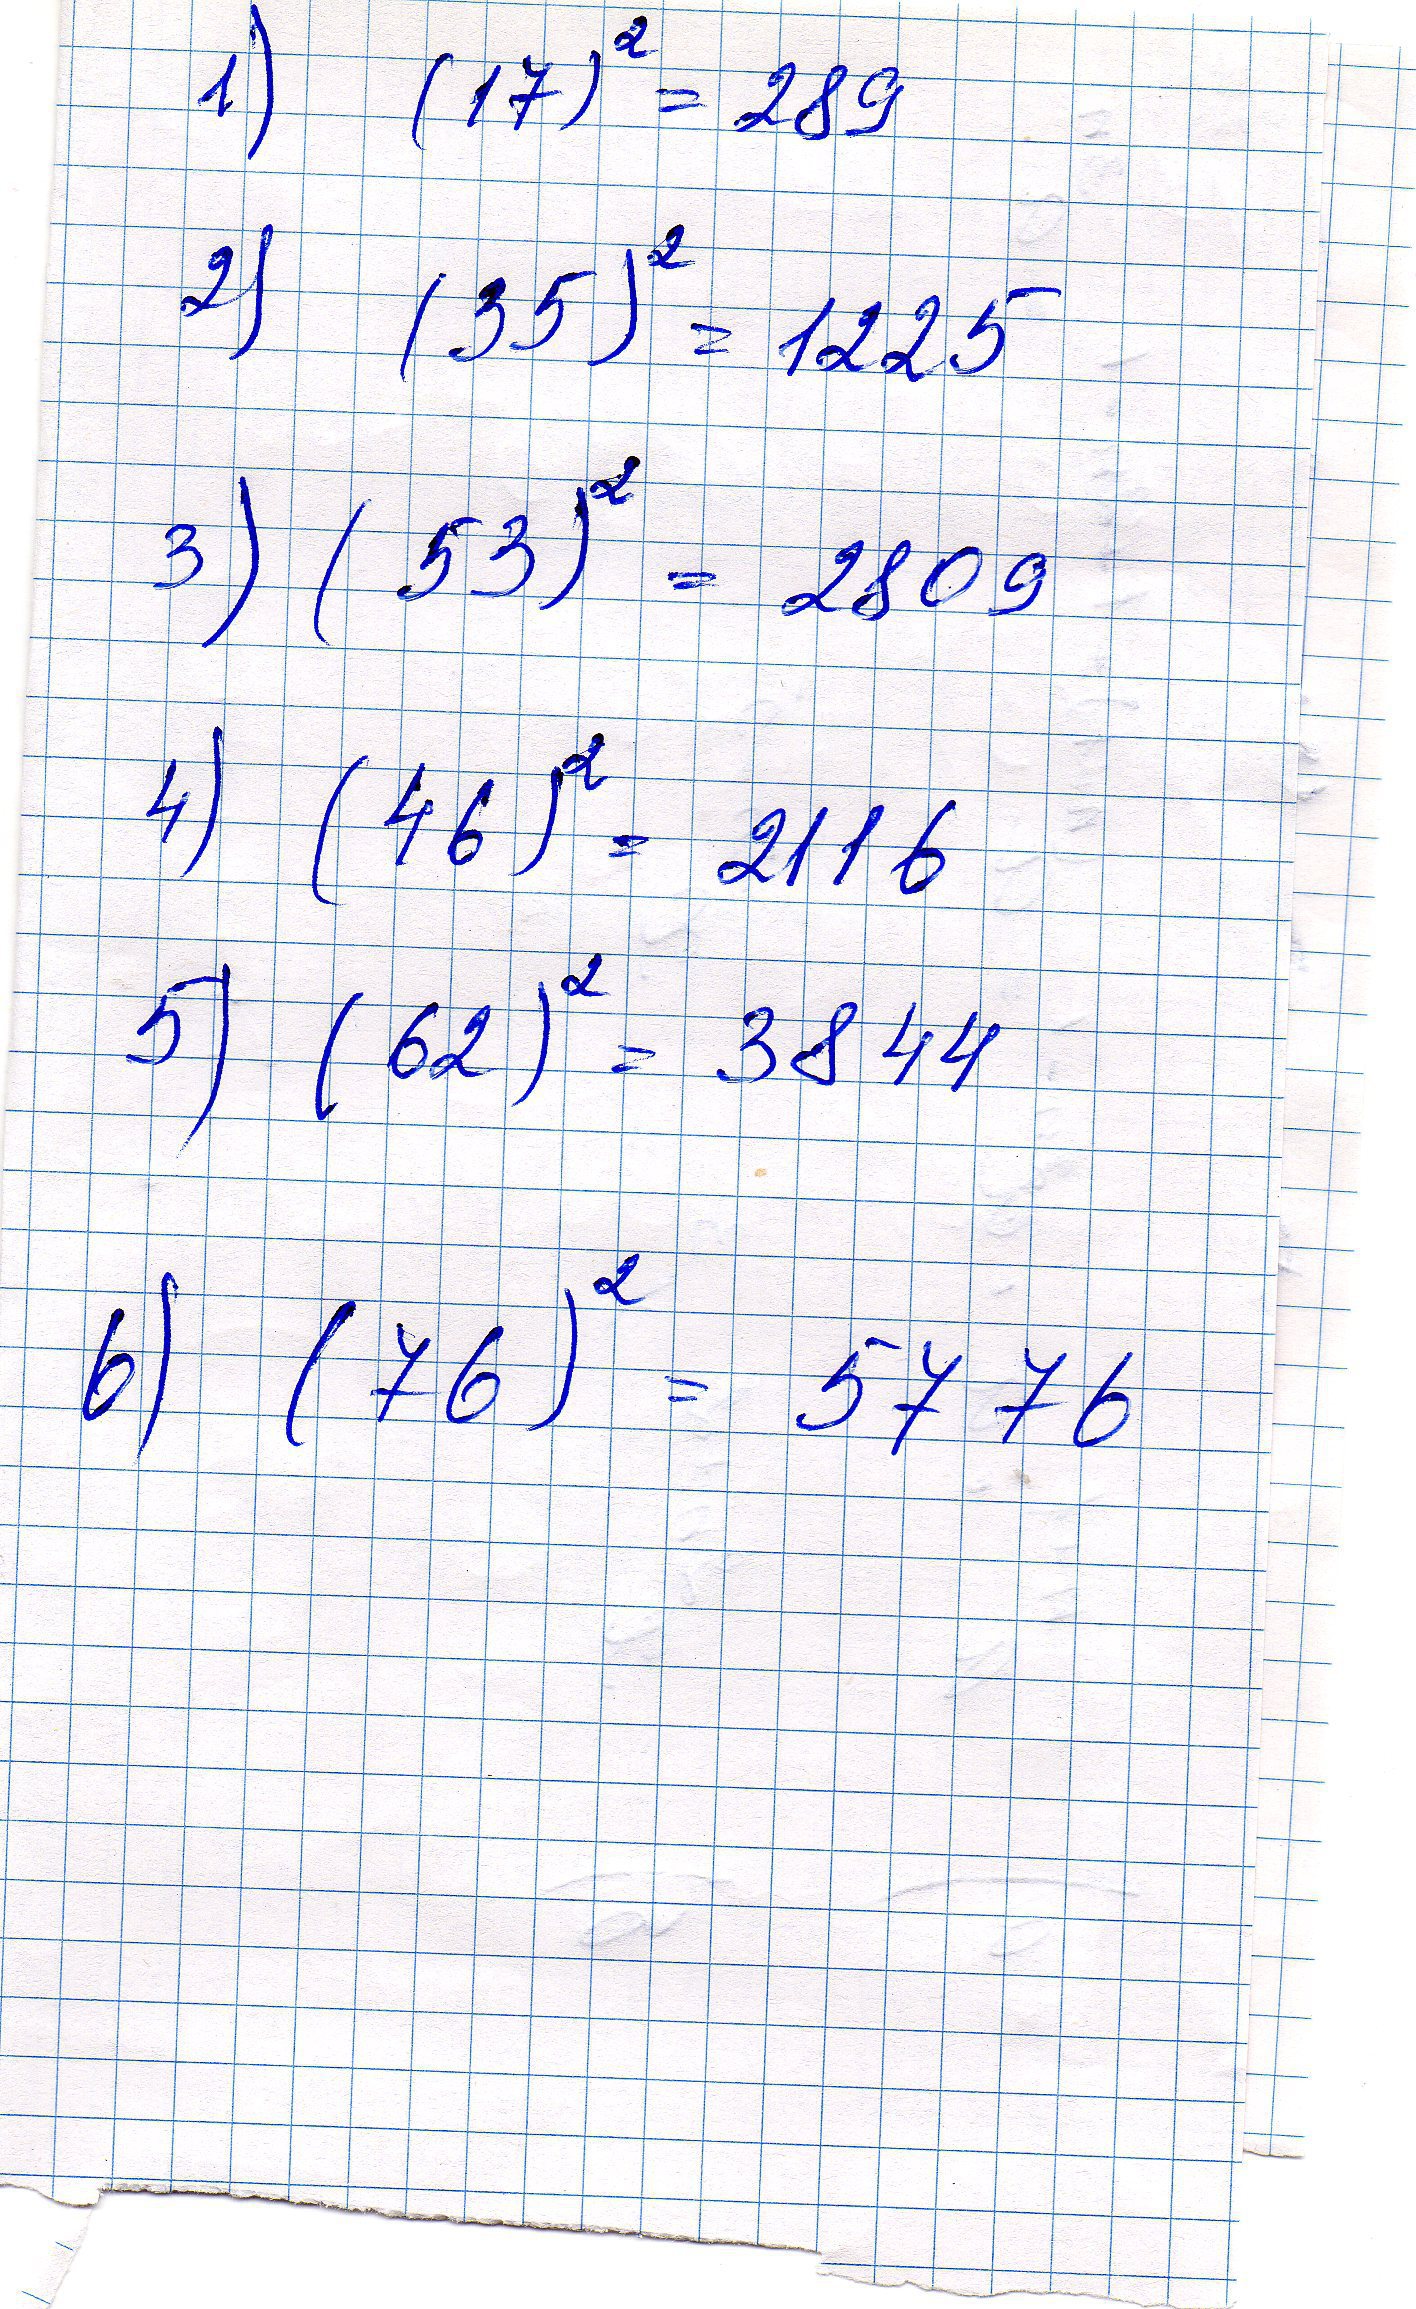 1) (17)² = 289
2) (35)² = 1225
3) (53)² = 2809
4) (46)² = 2116
5) (62)² = 3844
6) (76)² = 5776